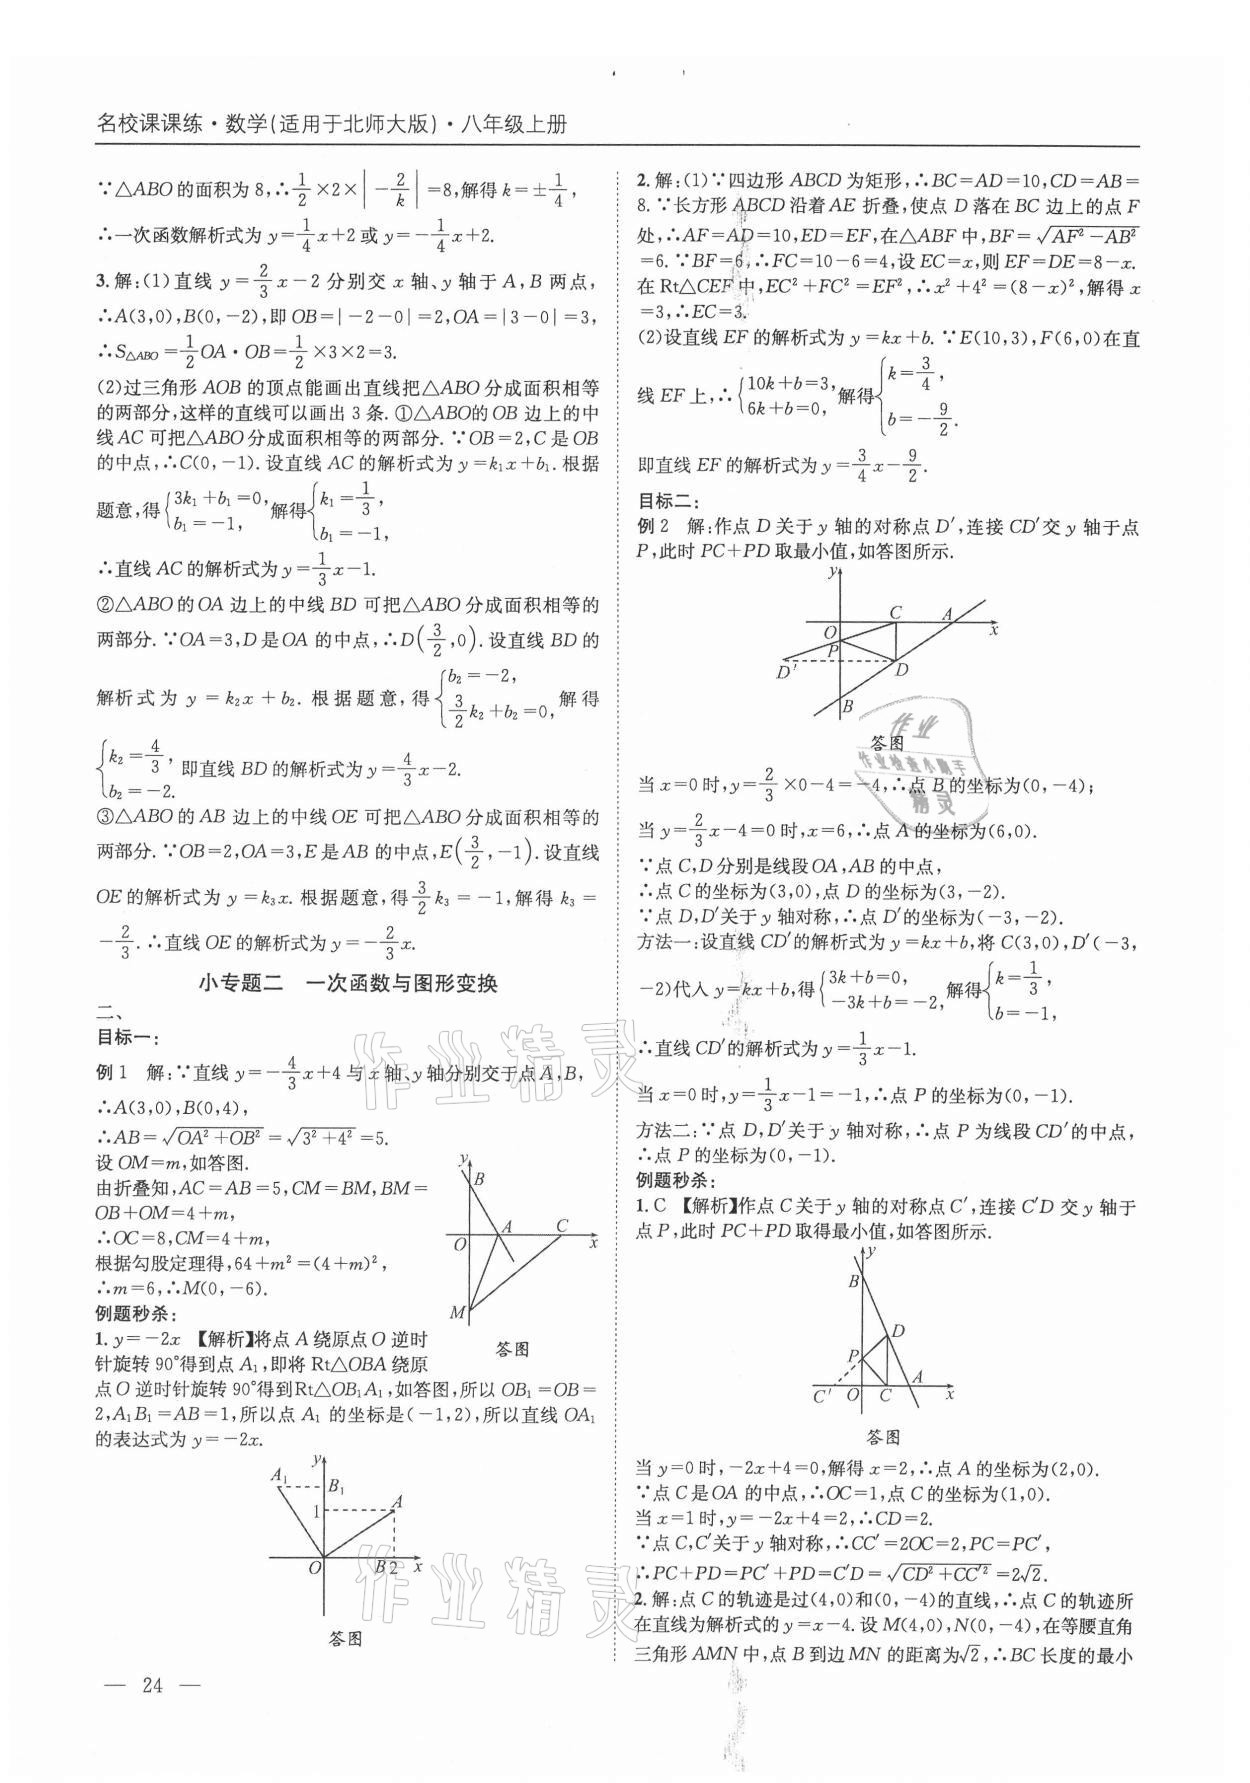 名校课课练·数学(适用于北师大版)·八年级上册
∵△ABO的面积为8,∴1/2×2×|-2/k|=8,解得k=±1/4,
∴一次函数解析式为y=1/4x+2或y=-1/4x+2.
3.解:(1)直线y=2/3x-2分别交x轴、y轴于A,B两点,
∴A(3,0),B(0,-2),即OB=|-2-0|=2,OA=|3-0|=3,
∴S△ABO=1/2OA·OB=1/2×3×2=3.
(2)过三角形AOB的顶点能画出直线把△ABO分成面积相等
的两部分,这样的直线可以画出3条.①△ABO的OB边上的中
线AC可把△ABO分成面积相等的两部分.∵OB=2,C是OB
的中点,∴C(0,-1).设直线AC的解析式为y=k₁x+b₁.根据
题意,得{3k₁+b₁=0, b₁=-1, 解得{k₁=1/3, b₁=-1,
∴直线AC的解析式为y=1/3x-1.
②△ABO的OA边上的中线BD可把△ABO分成面积相等的
两部分.∵OA=3,D是OA的中点,∴D(3/2,0).设直线BD的
解析式为y=k₂x+b₂.根据题意,得{b₂=-2, 3/2k₂+b₂=0, 解得
{k₂=4/3, b₂=-2. 即直线BD的解析式为y=4/3x-2.
③△ABO的AB边上的中线OE可把△ABO分成面积相等的
两部分.∵OB=2,OA=3,E是AB的中点,E(3/2,-1).设直线
OE的解析式为y=k₃x.根据题意,得3/2k₃=-1,解得k₃=
-2/3.∴直线OE的解析式为y=-2/3x.
小专题二 一次函数与图形变换
二、
目标一:
例1 解:∵直线y=-4/3x+4与x轴、y轴分别交于点A,B,
∴A(3,0),B(0,4),
∴AB=√(OA²+OB²)=√(3²+4²)=5.
设OM=m,如答图.
由折叠知,AC=AB=5,CM=BM,BM=
OB+OM=4+m,
∴OC=8,CM=4+m,
根据勾股定理得,64+m²=(4+m)²,
∴m=6,∴M(0,-6).
y
B
A
C
O
x
M
答图
例题秒杀:
1.y=-2x 【解析】将点A绕原点O逆时
针旋转90°得到点A₁,即将Rt△OBA绕原
点O逆时针旋转90°得到Rt△OB₁A₁,如答图,所以OB₁=OB=
2,A₁B₁=AB=1,所以点A₁的坐标是(-1,2),所以直线OA₁
的表达式为y=-2x.
y
A₁
B₁
1
A
O
B2
x
答图
2.解:(1)∵四边形ABCD为矩形,∴BC=AD=10,CD=AB=
8.∵长方形ABCD沿着AE折叠,使点D落在BC边上的点F
处,∴AF=AD=10,ED=EF,在△ABF中,BF=√(AF²-AB²)
=6.∵BF=6,∴FC=10-6=4,设EC=x,则EF=DE=8-x.
在Rt△CEF中,EC²+FC²=EF²,∴x²+4²=(8-x)²,解得x
=3,∴EC=3.
(2)设直线EF的解析式为y=kx+b.∵E(10,3),F(6,0)在直
线EF上,∴{10k+b=3, 6k+b=0, 解得{k=3/4, b=-9/2.
即直线EF的解析式为y=3/4x-9/2.
目标二:
例2 解:作点D关于y轴的对称点D′,连接CD′交y轴于点
P,此时PC+PD取最小值,如答图所示.
y
C
A
O
x
P
D′
D
B
答图
当x=0时,y=2/3×0-4=-4,∴点B的坐标为(0,-4);
当y=2/3x-4=0时,x=6,∴点A的坐标为(6,0).
∵点C,D分别是线段OA,AB的中点,
∴点C的坐标为(3,0),点D的坐标为(3,-2).
∵点D,D′关于y轴对称,∴点D′的坐标为(-3,-2).
方法一:设直线CD′的解析式为y=kx+b,将C(3,0),D′(-3,
-2)代入y=kx+b,得{3k+b=0, -3k+b=-2, 解得{k=1/3, b=-1,
∴直线CD′的解析式为y=1/3x-1.
当x=0时,y=1/3x-1=-1,∴点P的坐标为(0,-1).
方法二:∵点D,D′关于y轴对称,∴点P为线段CD′的中点,
∴点P的坐标为(0,-1).
例题秒杀:
1.C 【解析】作点C关于y轴的对称点C′,连接C′D交y轴于
点P,此时PC+PD取得最小值,如答图所示.
y
B
D
P
A
C′
O
C
x
答图
当y=0时,-2x+4=0,解得x=2,∴点A的坐标为(2,0).
∵点C是OA的中点,∴OC=1,点C的坐标为(1,0).
当x=1时,y=-2x+4=2,∴CD=2.
∵点C,C′关于y轴对称,∴CC′=2OC=2,PC=PC′,
∴PC+PD=PC′+PD=C′D=√(CD²+CC′²)=2√2.
2.解:点C的轨迹是过(4,0)和(0,-4)的直线,∴点C的轨迹所
在直线为解析式的y=x-4.设M(4,0),N(0,-4),在等腰直角
三角形AMN中,点B到边MN的距离为√2,∴BC长度的最小
— 24 —
作业精灵
作业精灵
作业
作业检查小助手
精灵